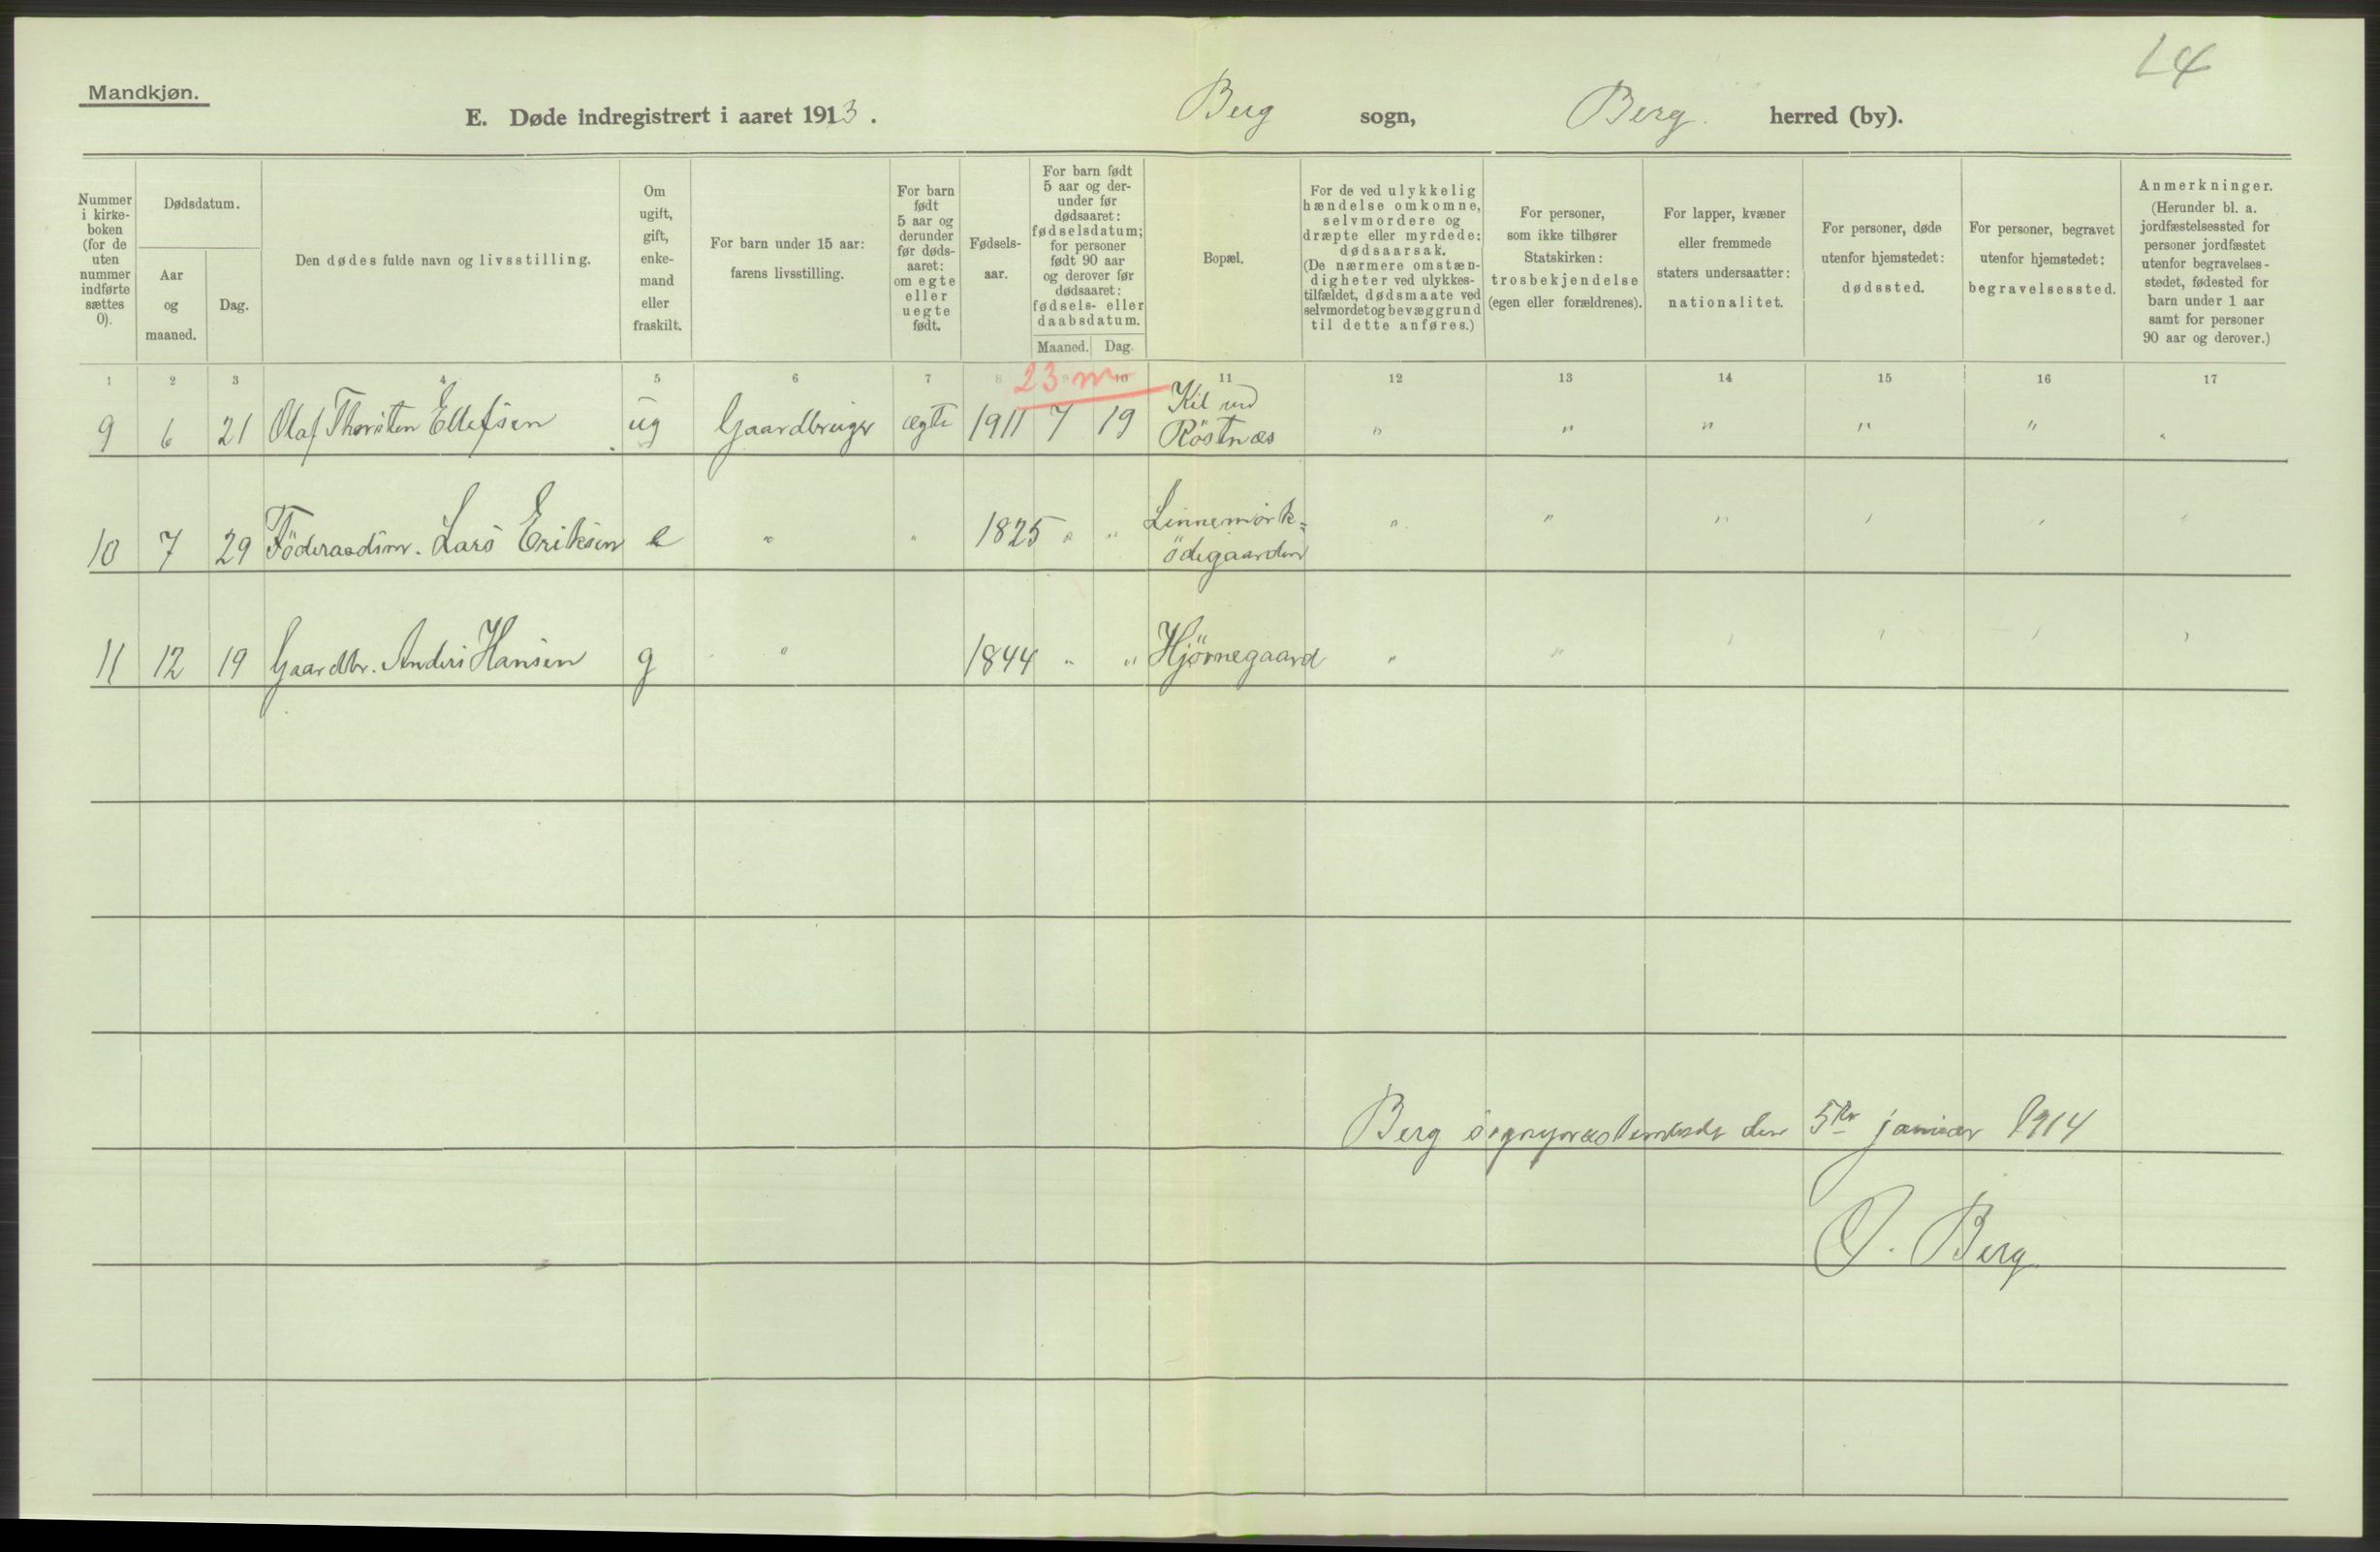 14
Mandkjøn.
E. Døde indregistrert i aaret 1913. Berg sogn, Berg. herred (by).
Nummer i kirke-boken (for de uten nummer indførte sættes 0).
Dødsdatum.
Aar og maaned.
Dag.
Den dødes fulde navn og livsstilling.
Om ugift, gift, enke-mand eller fraskilt.
For barn under 15 aar: farens livsstilling.
For barn født 5 aar og derunder før døds-aaret: om egte eller uegte født.
Fødsels-aar.
For barn født 5 aar og der-under før dødsaaret: fødselsdatum; for personer født 90 aar og derover før dødsaaret: fødsels- eller daabsdatum.
Maaned. Dag.
Bopæl.
For de ved ulykkelig hændelse omkomne, selvmordere og dræpte eller myrdede: dødsaarsak. (De nærmere omstæn-digheter ved ulykkes-tilfældet, dødsmaate ved selvmordet og bevæggrund til dette anføres.)
For personer, som ikke tilhører Statskirken: trosbekjendelse (egen eller forældrenes).
For lapper, kvæner eller fremmede staters undersaatter: nationalitet.
For personer, døde utenfor hjemstedet: dødssted.
For personer, begravet utenfor hjemstedet: begravelsessted.
Anmerkninger. (Herunder bl. a. jordfæstelsessted for personer jordfæstet utenfor begravelses-stedet, fødested for barn under 1 aar samt for personer 90 aar og derover.)
1 2 3 4 5 6 7 8 9 10 11 12 13 14 15 16 17
23 m
9 6 21 Olaf Thorsten Ellefsen ug Gaardbruger ægte 1911 7 19 Kil und Röstnæs " " " " " "
10 7 29 Föderaadsm. Lars Eriksen e " " 1825 " " Linnemörk=ödegaarden " " " " " "
11 12 19 Gaardbr. Anders Hansen g " 1844 " " Hjörnegaard " " " " " "
Berg sogneprestembede den 5te januar 1914
O. Berg